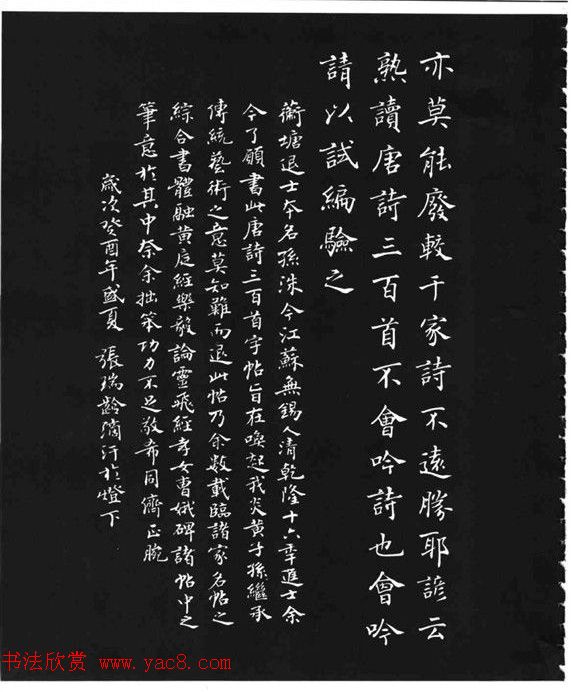 亦莫能廢較千家詩不遠勝耶諺云
熟讀唐詩三百首不會吟詩也會吟
請以試編驗之
蘅塘退士本名孫洙今江蘇無錫人清乾隆十六年進士余
今了願書此唐詩三百首字帖旨在喚起我炎黃子孫繼承
傳統藝術之意莫知難而退此帖乃余數載臨諸家名帖之
綜合書體融黃庭經樂毅論靈飛經孝女曹娥碑諸帖中之
筆意於其中奈余拙笨功力不足敬希同儕正腕
歲次癸酉年盛夏 張瑞齡滴汗於燈下
书法欣赏 www.yac8.com